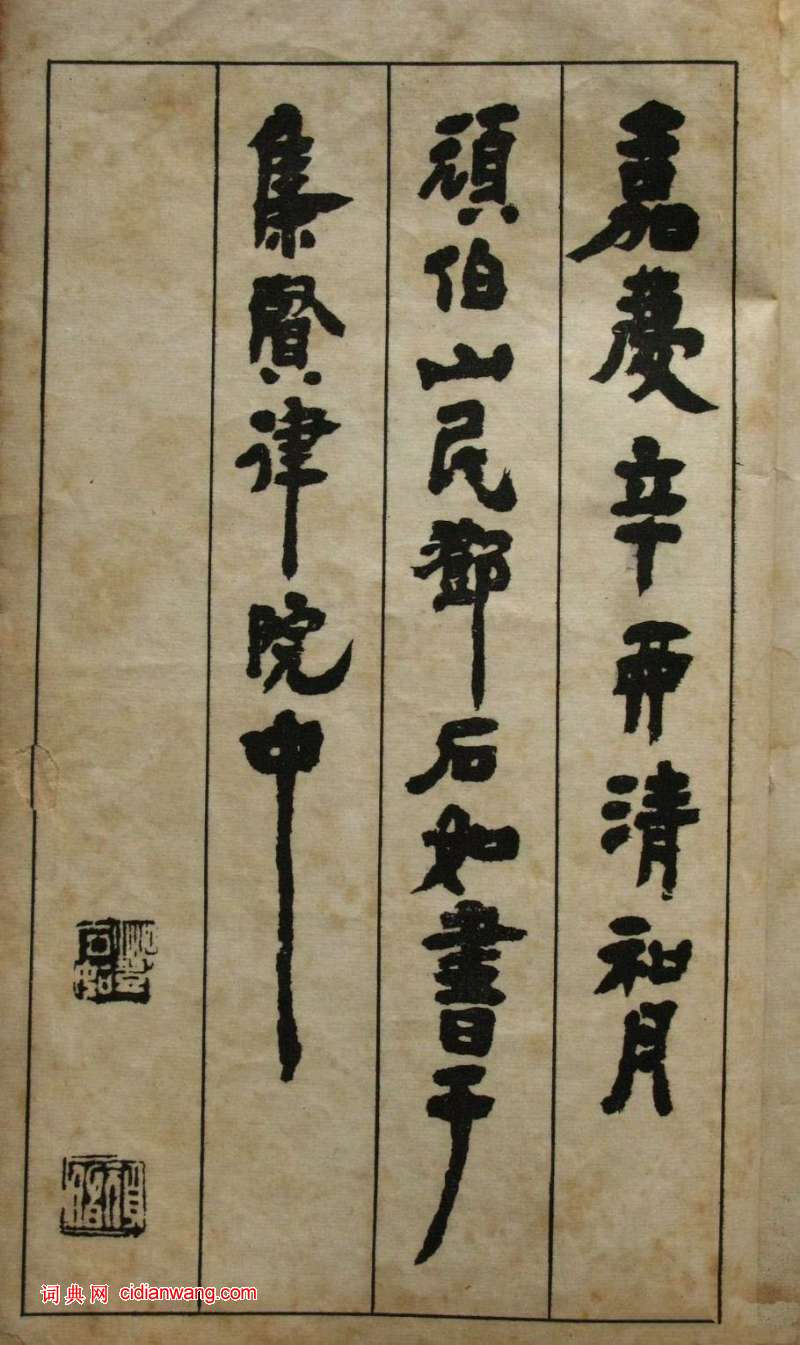 嘉慶辛酉清和月
頑伯山民鄧石如書于
集賢律院中
鄧石如
頑伯
词典网 cidianwang.com